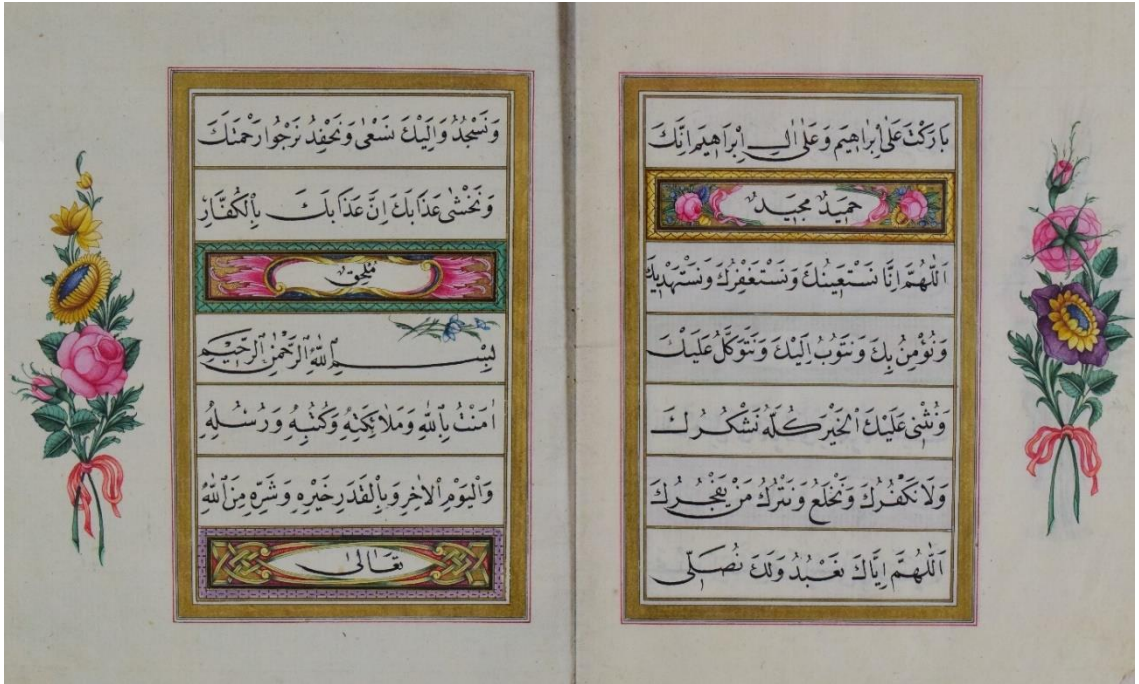 بَارَكْتَ عَلٰى اِبْرَاهِيمَ وَعَلٰى اٰلِ اِبْرَاهِيمَ اِنَّكَ
حَمِيدٌ مَجِيدٌ
اَللّٰهُمَّ اِنَّا نَسْتَعِينُكَ وَنَسْتَغْفِرُكَ وَنَسْتَهْدِيكَ
وَنُؤْمِنُ بِكَ وَنَتُوبُ اِلَيْكَ وَنَتَوَكَّلُ عَلَيْكَ
وَنُثْنِى عَلَيْكَ الْخَيْرَ كُلَّهُ نَشْكُرُكَ
وَلَا نَكْفُرُكَ وَنَخْلَعُ وَنَتْرُكُ مَنْ يَفْجُرُكَ
اَللّٰهُمَّ اِيَّاكَ نَعْبُدُ وَلَكَ نُصَلِّى
وَنَسْجُدُ وَاِلَيْكَ نَسْعٰى وَنَحْفِدُ نَرْجُوا رَحْمَتَكَ
وَنَخْشٰى عَذَابَكَ اِنَّ عَذَابَكَ بِالْكُفَّارِ
مُلْحِقٌ
بِسْمِ اللّٰهِ الرَّحْمٰنِ الرَّحِيمِ
اٰمَنْتُ بِاللّٰهِ وَمَلٰئِكَتِهِ وَكُتُبِهِ وَرُسُلِهِ
وَالْيَوْمِ الْاٰخِرِ وَبِالْقَدَرِ خَيْرِهِ وَشَرِّهِ مِنَ اللّٰهِ
تَعَالٰى